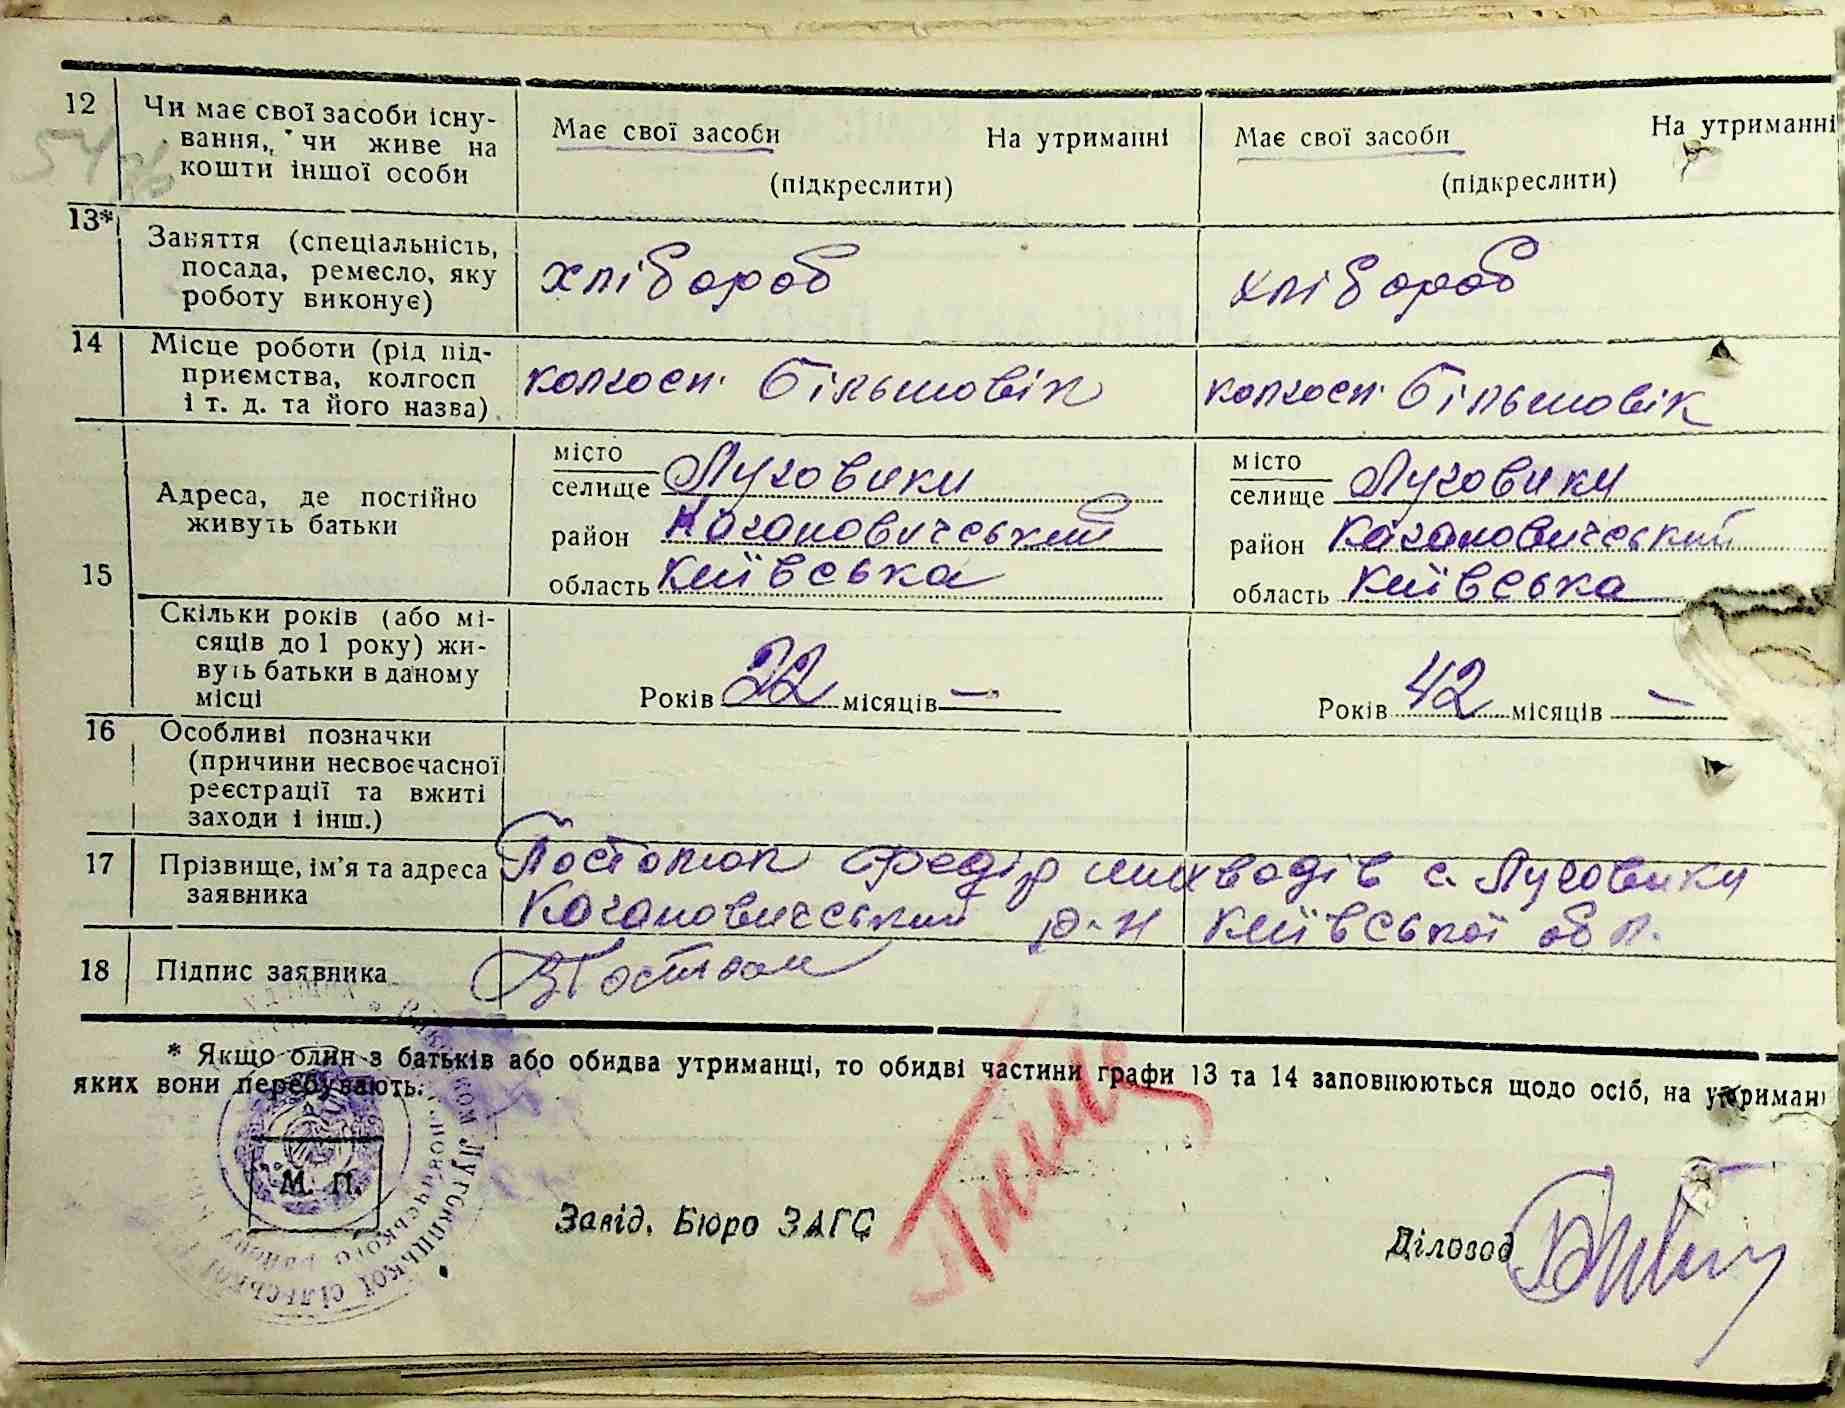 12
Чи має свої засоби існу-
вання, чи живе на
кошти іншої особи
Має свої засоби На утриманні
(підкреслити)
Має свої засоби На утриманні
(підкреслити)
13*
Заняття (спеціальність,
посада, ремесло, яку
роботу виконує)
хлібороб
хлібороб
14
Місце роботи (рід під-
приємства, колгосп
і т. д. та його назва)
колгосп. Більшовік
колгосп. Більшовік
15
Адреса, де постійно
живуть батьки
місто
селище Луговики
район Кагановичський
область Київська
місто
селище Луговики
район Кагановичський
область Київська
Скільки років (або мі-
сяців до 1 року) жи-
вуть батьки в даному
місці
Років 22 місяців —
Років 42 місяців —
16
Особливі позначки
(причини несвоєчасної
реєстрації та вжиті
заходи і інш.)
17
Прізвище, ім'я та адреса
заявника
Постолюк Федір с. Луговики
Кагановичський р-н Київської обл.
18
Підпис заявника
* Якщо один з батьків або обидва утриманці, то обидві частини графи 13 та 14 заповнюються щодо осіб, на утриман
яких вони перебувають.
М. П.
Завід. Бюро ЗАГС
Діловод